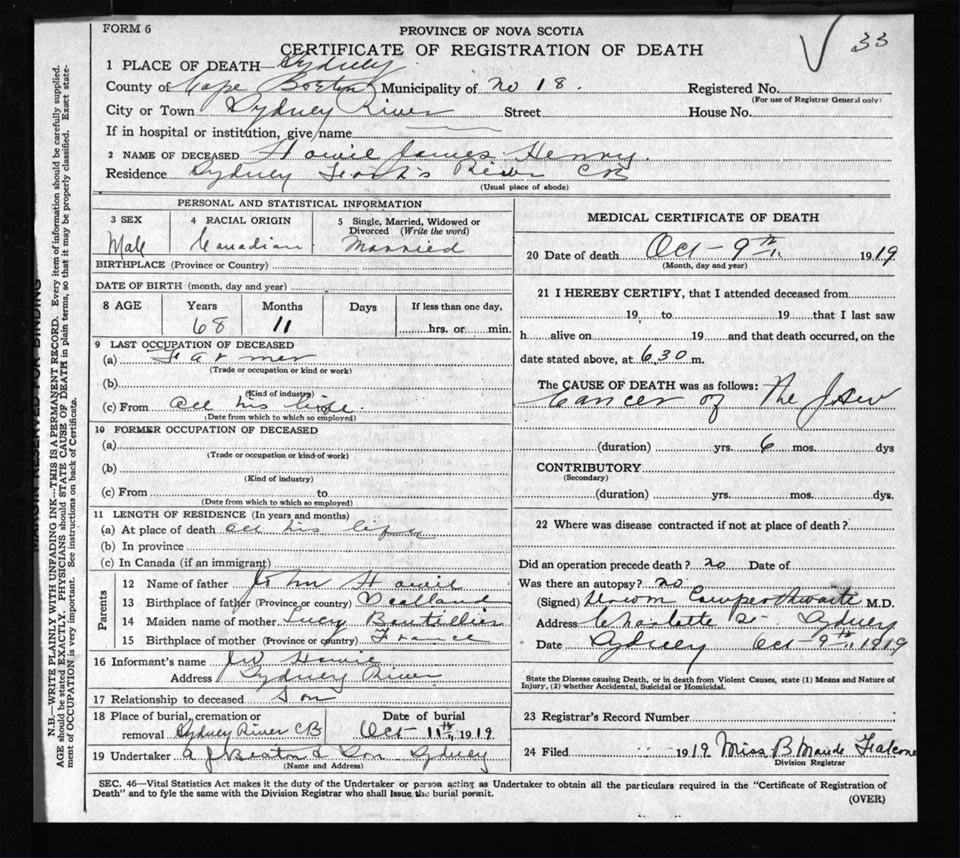 FORM 6
PROVINCE OF NOVA SCOTIA
33
CERTIFICATE OF REGISTRATION OF DEATH
1 PLACE OF DEATH—Sydney
County of Cape Breton Municipality of No 18. Registered No.
(For use of Registrar General only)
City or Town Sydney River Street House No.
If in hospital or institution, give name
2 NAME OF DECEASED Howie James Henry.
Residence Sydney River CB
(Usual place of abode)
PERSONAL AND STATISTICAL INFORMATION
3 SEX Male
4 RACIAL ORIGIN Canadian
5 Single, Married, Widowed or Divorced (Write the word) Married
BIRTHPLACE (Province or Country)
DATE OF BIRTH (month, day and year)
8 AGE Years 68 Months 11 Days If less than one day, hrs. or min.
9 LAST OCCUPATION OF DECEASED
(a) Farmer
(Trade or occupation or kind or work)
(b)
(Kind of industry)
(c) From All his life.
(Date from which to which so employed)
10 FORMER OCCUPATION OF DECEASED
(a)
(Trade or occupation or kind of work)
(b)
(Kind of industry)
(c) From to
(Date from which to which so employed)
11 LENGTH OF RESIDENCE (In years and months)
(a) At place of death All his life
(b) In province
(c) In Canada (if an immigrant)
Parents
12 Name of father John Howie
13 Birthplace of father (Province or country)
14 Maiden name of mother Lucy Boutillier
15 Birthplace of mother (Province or country) France
16 Informant's name JW Howie
Address Sydney River
17 Relationship to deceased Son
18 Place of burial, cremation or removal Sydney River CB
Date of burial Oct 11th 1919
19 Undertaker A J Beaton & Son Sydney
(Name and Address)
MEDICAL CERTIFICATE OF DEATH
20 Date of death Oct - 9th 1919
(Month, day and year)
21 I HEREBY CERTIFY, that I attended deceased from
19 to 19 that I last saw
h alive on 19 and that death occurred, on the
date stated above, at 6.30 m.
The CAUSE OF DEATH was as follows:
Cancer of The Jaw
(duration) yrs. 6 mos. dys
CONTRIBUTORY
(Secondary)
(duration) yrs. mos. dys.
22 Where was disease contracted if not at place of death?
Did an operation precede death? no Date of
Was there an autopsy? no
(Signed) Cowperthwaite M.D.
Address Charlotte St - Sydney
Date Sydney Oct - 9th 1919
State the Disease causing Death, or in death from Violent Causes, state (1) Means and Nature of
Injury, (2) whether Accidental, Suicidal or Homicidal.
23 Registrar's Record Number
24 Filed 1919 Miss B Maude Falconer
Division Registrar
SEC. 46—Vital Statistics Act makes it the duty of the Undertaker or person acting as Undertaker to obtain all the particulars required in the "Certificate of Registration of
Death" and to fyle the same with the Division Registrar who shall issue the burial permit.
(OVER)
MARGIN RESERVED FOR BINDING
N.B.—WRITE PLAINLY WITH UNFADING INK—THIS IS A PERMANENT RECORD. Every item of information should be carefully supplied.
AGE should be stated EXACTLY. PHYSICIANS should STATE CAUSE OF DEATH in plain terms, so that it may be properly classified. Exact state-
ment of OCCUPATION is very important. See instructions on back of Certificate.